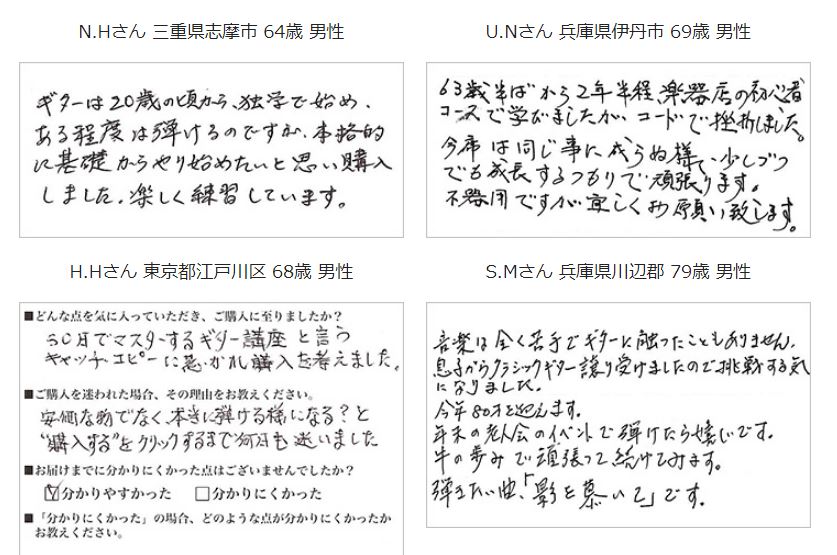 N.Hさん 三重県志摩市 64歳 男性
ギターは20歳の頃から、独学で始め、
ある程度は弾けるのですが、本格的
に基礎からやり始めたいと思い購入
しました。楽しく練習しています。
U.Nさん 兵庫県伊丹市 69歳 男性
63歳半ばから2年半程、楽器店の初心者
コースで学びましたが、コードで挫折しました。
今席は同じ事に成らぬ様で、少しづつ
でも成長するつもりで頑張ります。
不器用ですが宜しくお願い致します。
H.Hさん 東京都江戸川区 68歳 男性
■どんな点を気に入っていただき、ご購入に至りましたか？
30日でマスターするギター講座と言う
キャッチ・コピーに惹かれ購入を考えました。
■ご購入を迷われた場合、その理由をお教えください。
安価な物でなく、本当に弾ける様になる？と
"購入する"をクリックするまで何日も迷いました
■お届けまでに分かりにくかった点はございませんでしたか？
☑分かりやすかった □分かりにくかった
■「分かりにくかった」の場合、どのような点が分かりにくかったか
お教えください。
S.Mさん 兵庫県川辺郡 79歳 男性
音楽は全く苦手でギターに触ったこともありません。
息子からクラシックギター譲り受けましたので挑戦する気
になりました。
今年80才を迎えます。
年末の老人会のイベントで弾けたら嬉しいです。
牛の歩みで頑張って続けてみます。
弾きたい曲、「影を慕いて」です。